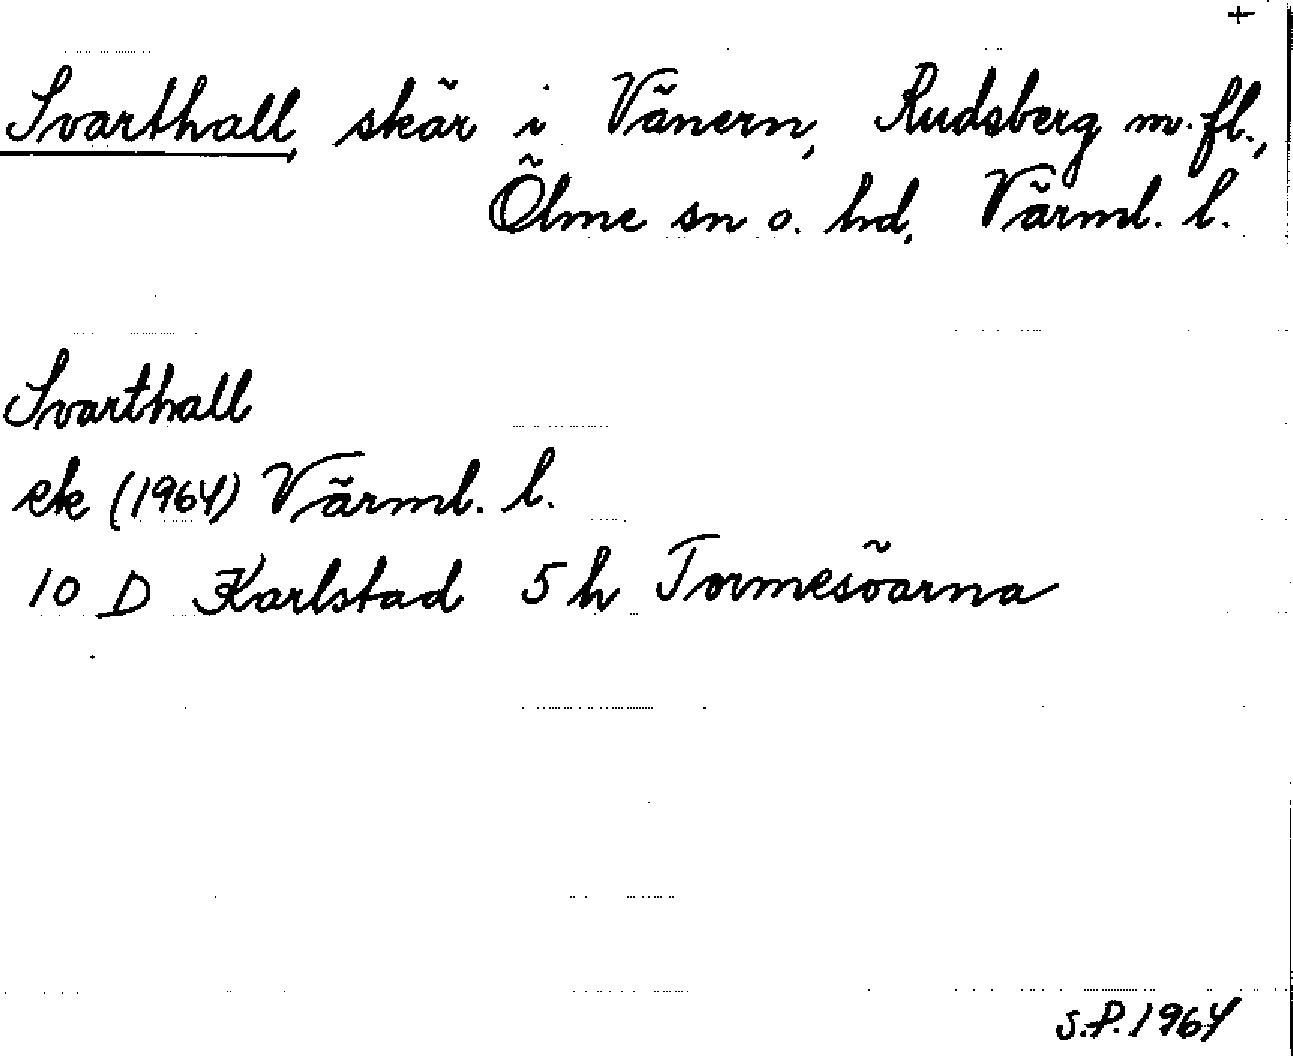 +
Svarthall, skär i Vänern, Rudsberg m.fl.,
Ölme sn o. hd, Värml. l.
Svarthall
ek (1964) Värml. l.
10 D Karlstad 5 h Tormesöarna
S.P. 1964